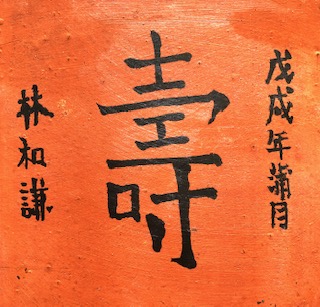 戊戌年蒲月
壽
林和謙